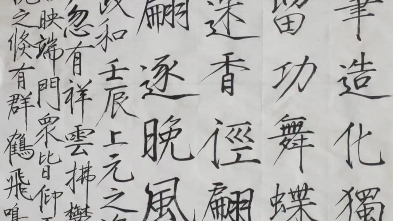 筆造化獨
留功舞蝶
迷香徑翩
翩逐晚風
政和壬辰上元之次
忽有祥雲拂鬱
映端門眾皆仰
之倏有群鶴飛鳴